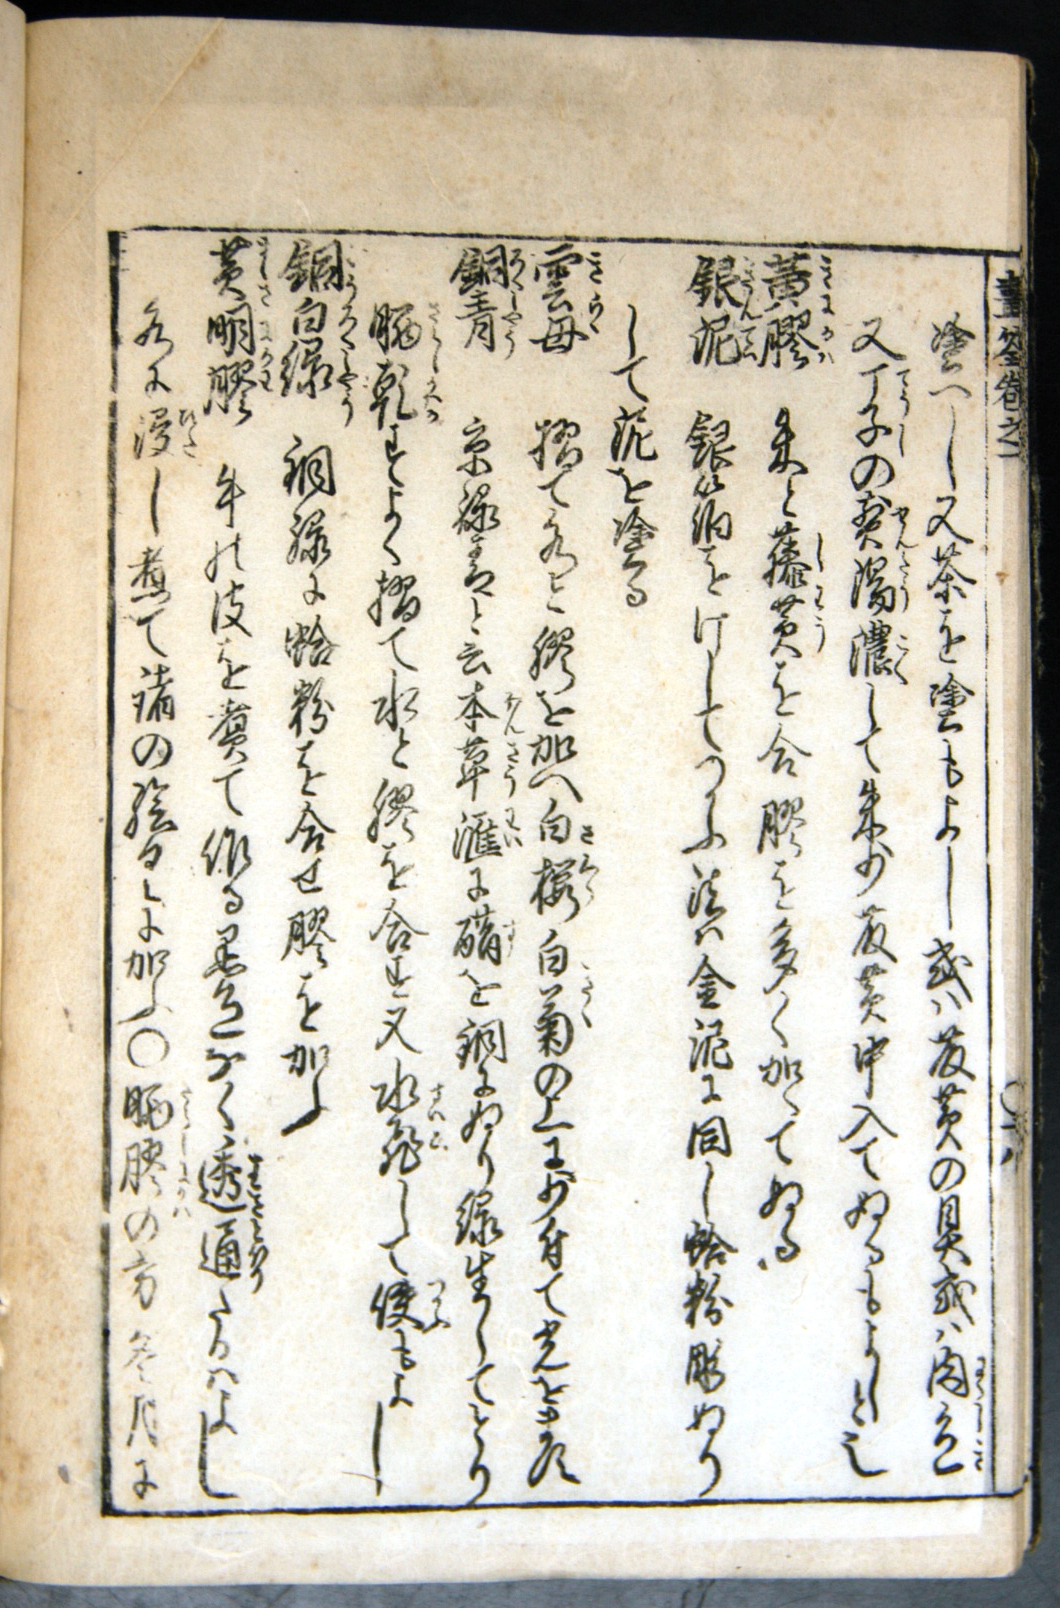 畫筌巻之一
塗へし又茶を塗もよし或ハ藤黄の具或ハ肉色
又丁子の煎湯濃して朱少藤黄中入てぬるもよしとも
黄膠 朱と藤黄を合膠を多く加へてぬる
銀泥 銀箔をけしてつかふ法ハ金泥に同し蛤粉彫ぬり
して泥を塗る
雲母 摺て水と膠を加へ白桜白菊の上に少付て光を
銅青 京緑青と云本草滙に醋を銅にぬり緑生してとり
晒乾すよく摺て水と膠を合す又水飛して使もよし
銅白緑 銅緑に蛤粉を合せ膠を加ふ
黄明膠 牛の皮を煮て作る黒色なく透通たるハよし
水に浸し煮て諸の絵具に加ふ〇晒膠の方冬月に